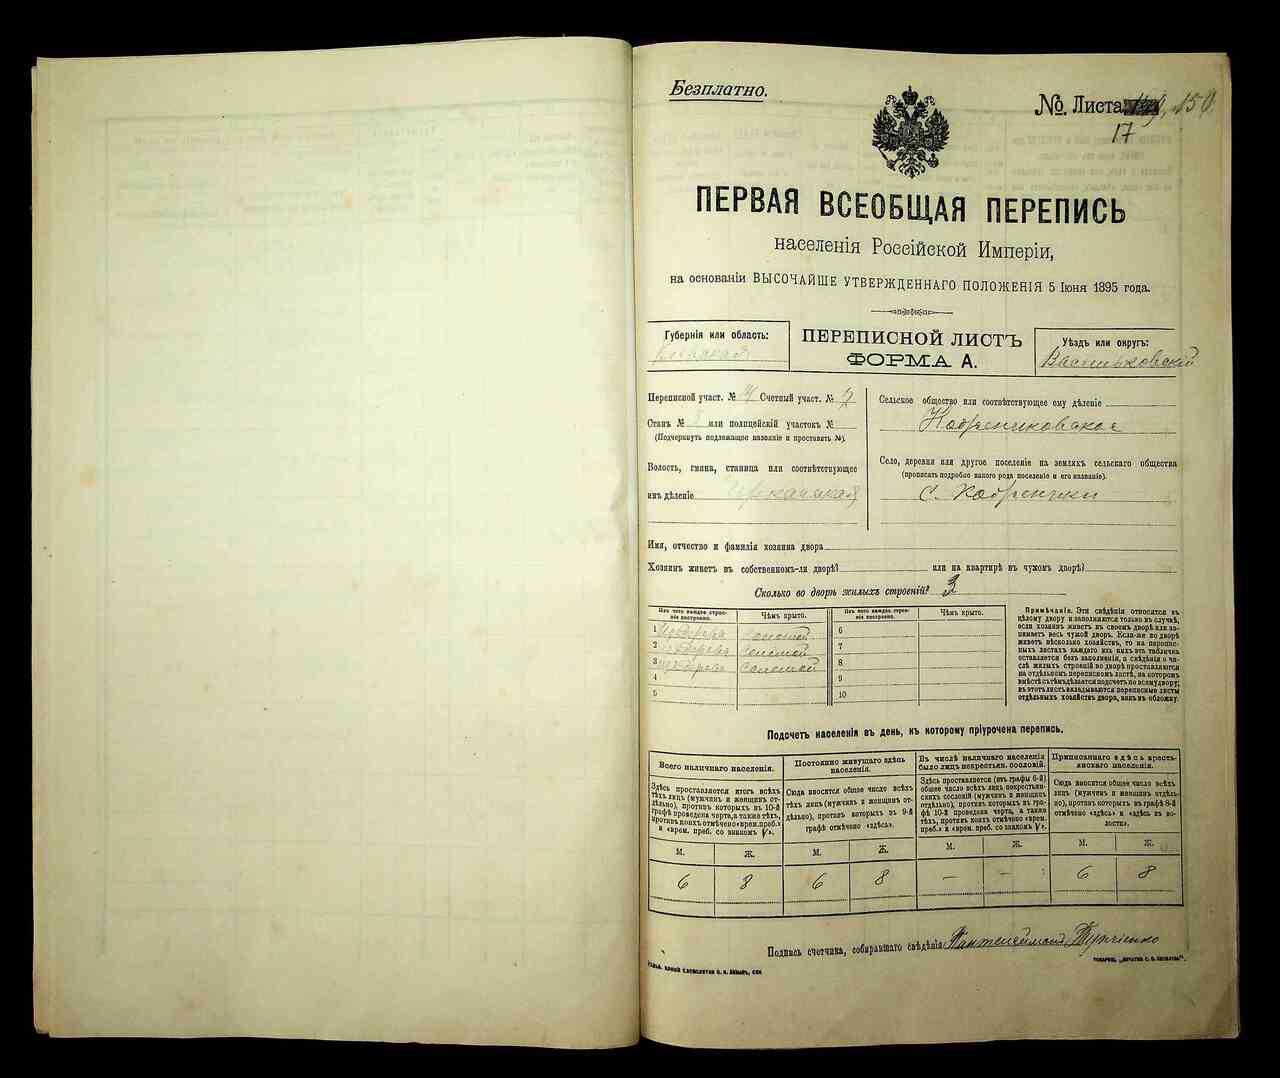 Безплатно.
№ Листа 150
17
ПЕРВАЯ ВСЕОБЩАЯ ПЕРЕПИСЬ
населенія Россійской Имперіи,
на основаніи ВЫСОЧАЙШЕ УТВЕРЖДЕННАГО ПОЛОЖЕНІЯ 5 Іюня 1895 года.
Губернія или область:
Кіевская
ПЕРЕПИСНОЙ ЛИСТЪ
ФОРМА А.
Уѣздъ или округъ:
Васильковскій
Переписной участ. № 4 Счетный участ. № 2
Станъ № или полицейскій участокъ №
(Подчеркнуть подлежащее названіе и проставить №).
Волость, гмина, станица или соотвѣтствующее
имъ дѣленіе
Сельское общество или соотвѣтствующее ему дѣленіе
Село, деревня или другое поселеніе на земляхъ сельскаго общества
(прописать подробно какого рода поселеніе и его названіе).
с.
Имя, отчество и фамилія хозяина двора
Хозяинъ живетъ въ собственномъ-ли дворѣ? или на квартирѣ въ чужомъ дворѣ?
Сколько во дворѣ жилыхъ строеній? 3
Изъ чего каждое строеніе построено. Чѣмъ крыто.
1 соломой
2 соломой
3 соломой
4
5
Изъ чего каждое строеніе построено. Чѣмъ крыто.
6
7
8
9
10
Примѣчаніе. Эти свѣдѣнія относятся къ
цѣлому двору и заполняются только въ случаѣ,
если хозяинъ живетъ въ своемъ дворѣ или занимаетъ
весь чужой дворъ. Если-же во дворѣ
живетъ нѣсколько хозяйствъ, то на переписныхъ
листахъ каждаго изъ нихъ эта табличка
оставляется безъ заполненія, а свѣдѣнія о числѣ
жилыхъ строеній во дворѣ проставляются
на отдѣльномъ переписномъ листѣ, на которомъ
вмѣстѣ съ тѣмъ дѣлается подсчетъ по всему двору;
въ этотъ листъ вкладываются переписные листы
отдѣльныхъ хозяйствъ двора, какъ въ обложку.
Подсчетъ населенія въ день, къ которому пріурочена перепись.
Всего наличнаго населенія.
Здѣсь проставляется итогъ всѣхъ
тѣхъ лицъ (мужчинъ и женщинъ отдѣльно),
противъ которыхъ въ 10-й
графѣ проведена черта, а также тѣхъ,
противъ коихъ отмѣчено «врем. преб.»
и «врем. преб. со знакомъ V».
М. Ж.
6 8
Постоянно живущаго здѣсь
населенія.
Сюда вносится общее число всѣхъ
тѣхъ лицъ (мужчинъ и женщинъ отдѣльно),
противъ которыхъ въ 9-й
графѣ отмѣчено «здѣсь».
М. Ж.
6 8
Въ числѣ наличнаго населенія
было лицъ некрестьян. сословій.
Здѣсь проставляется (изъ графы 6-й)
общее число всѣхъ лицъ некрестьянскихъ
сословій (мужчинъ и женщинъ
отдѣльно), противъ которыхъ въ графѣ
10-й проведена черта, а также
тѣхъ, противъ коихъ отмѣчено «врем.
преб.» и «врем. преб. со знакомъ V».
М. Ж.
– –
Приписаннаго здѣсь крестьянскаго
населенія.
Сюда вносится общее число всѣхъ
лицъ (мужчинъ и женщинъ отдѣльно),
противъ которыхъ въ графѣ 8-й
отмѣчено «здѣсь» и «здѣсь въ волости».
М. Ж.
6 8
Подпись счетчика, собиравшаго свѣдѣнія